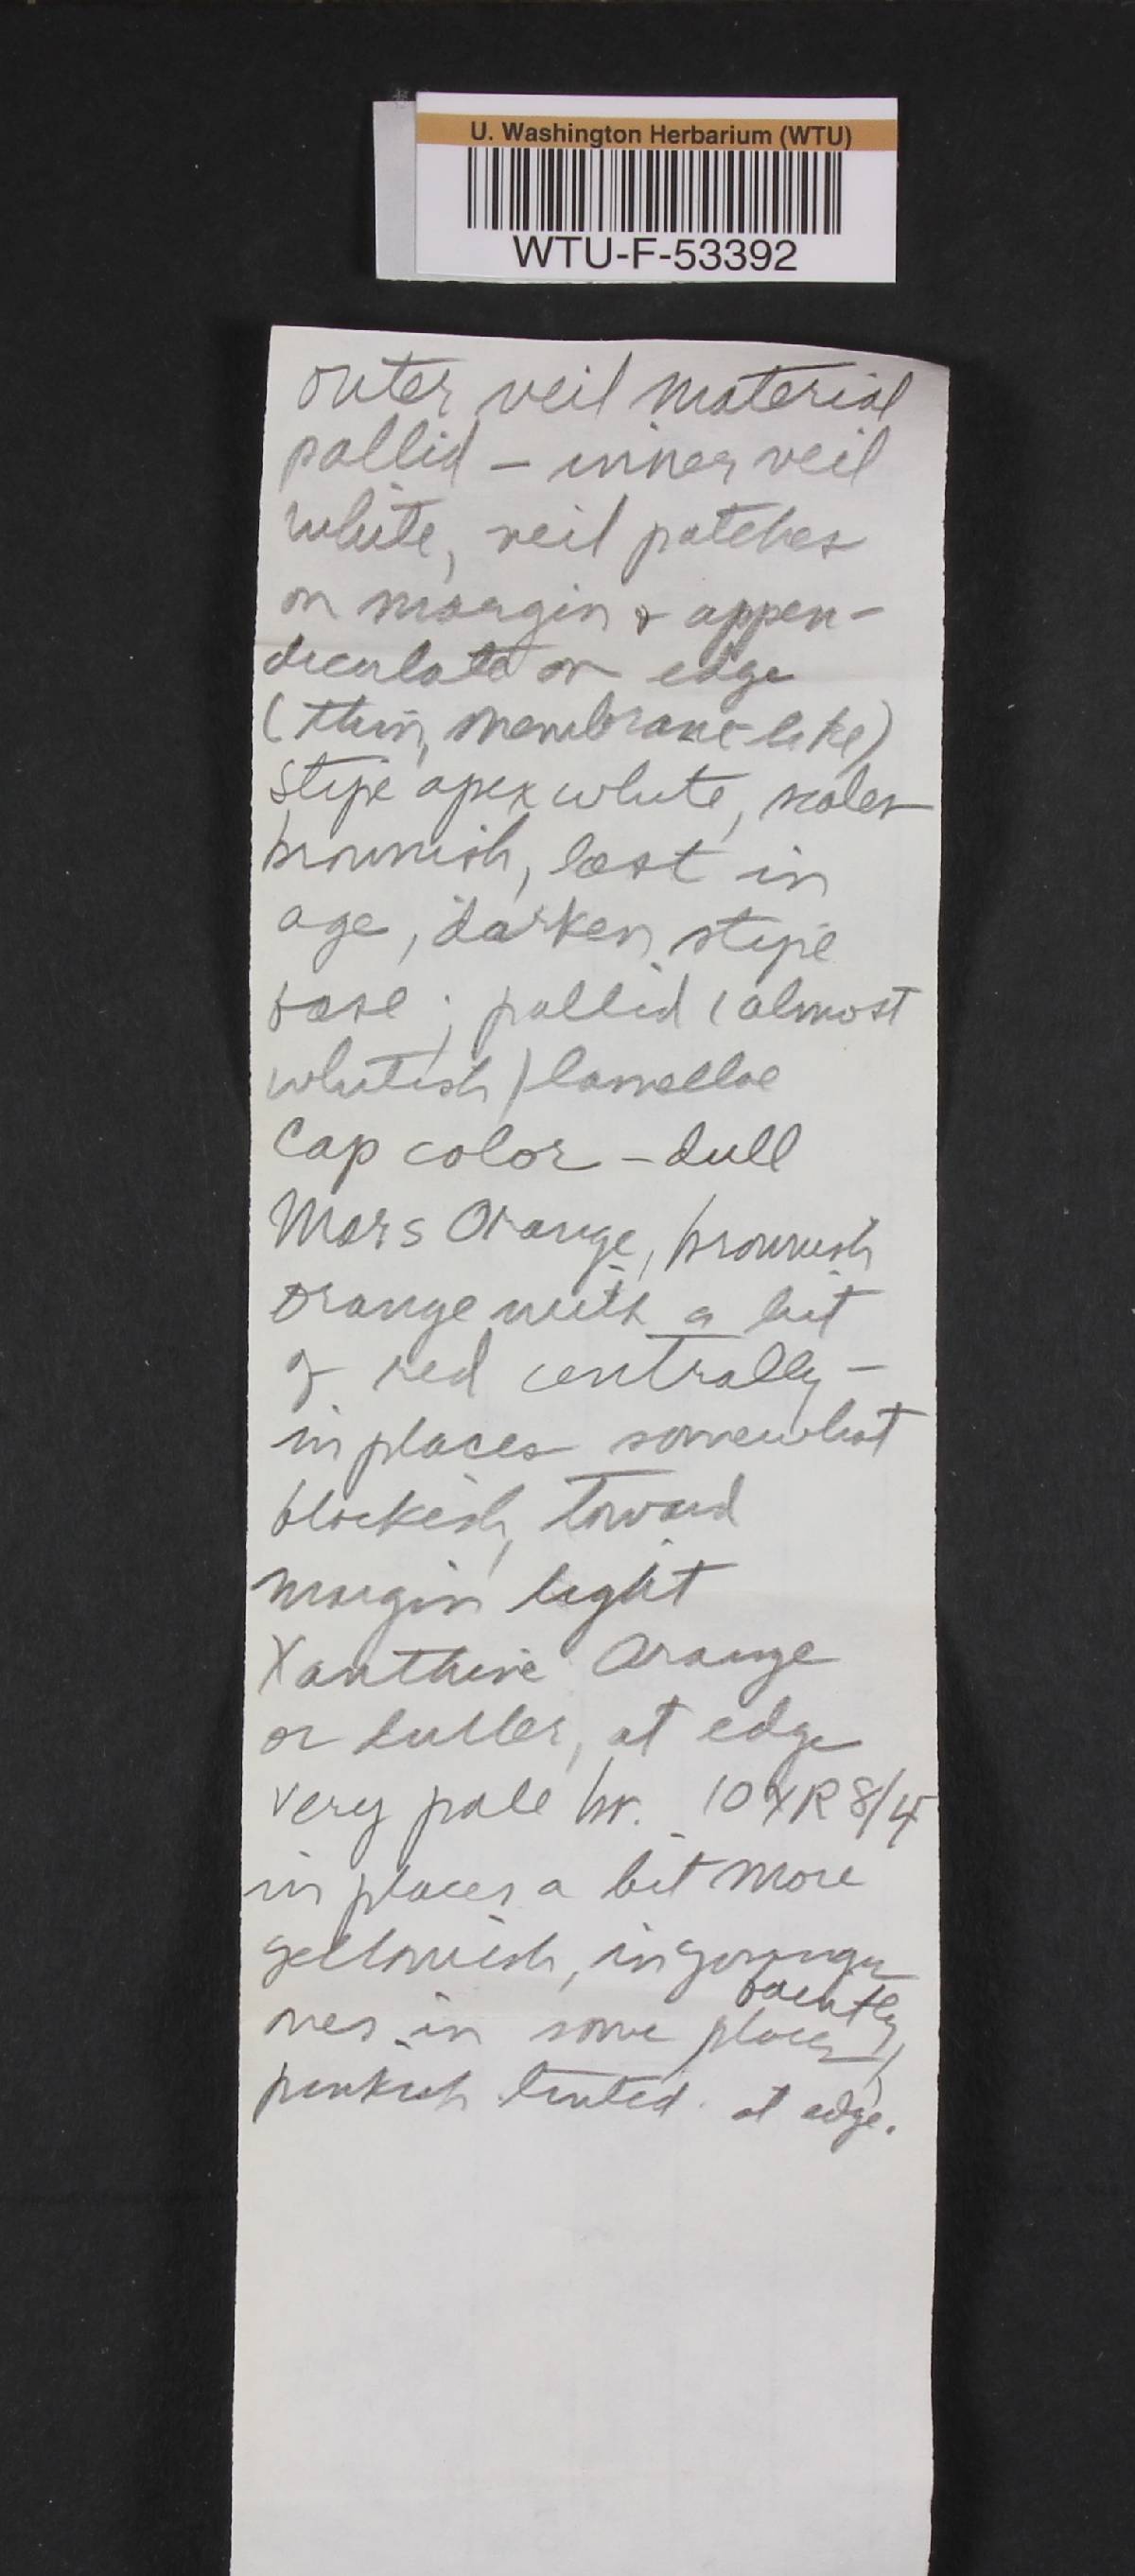 U. Washington Herbarium (WTU)
WTU-F-53392
outer veil material
pallid – inner veil
white, veil patches
on margin & appen-
diculate on edge
(thin, membrane-like)
Stipe apex white, scales
brownish, lost in
age, darken stipe
base; pallid (almost
whitish) lamellae
Cap color – dull
Mars Orange, brownish
orange with a bit
of red centrally –
in places somewhat
blackish, toward
margin light
Xanthine Orange
or duller, at edge
very pale br. 10YR 8/4
in places a bit more
yellowish, in younger
faintly
ones in some places,
pinkish tinted at edge.